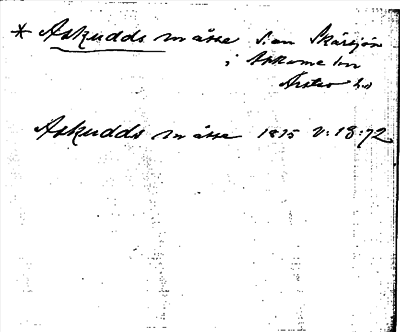 * Askudds måsse S. om Skärsjön
i Askome sn
Årstad hd
Askudds måsse 1875 V: 18:72